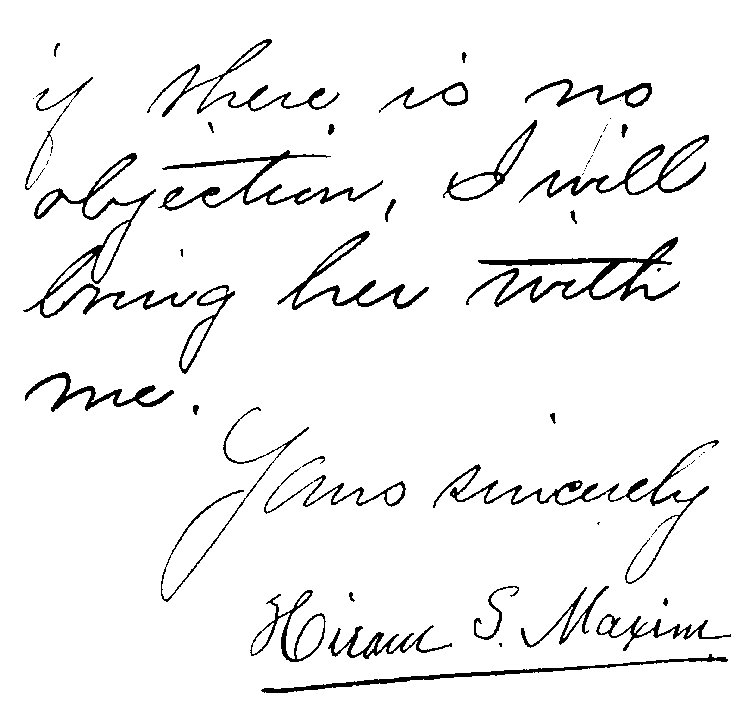 if there is no
objection, I will
bring her with
me.
Yours sincerely
Hiram S. Maxim